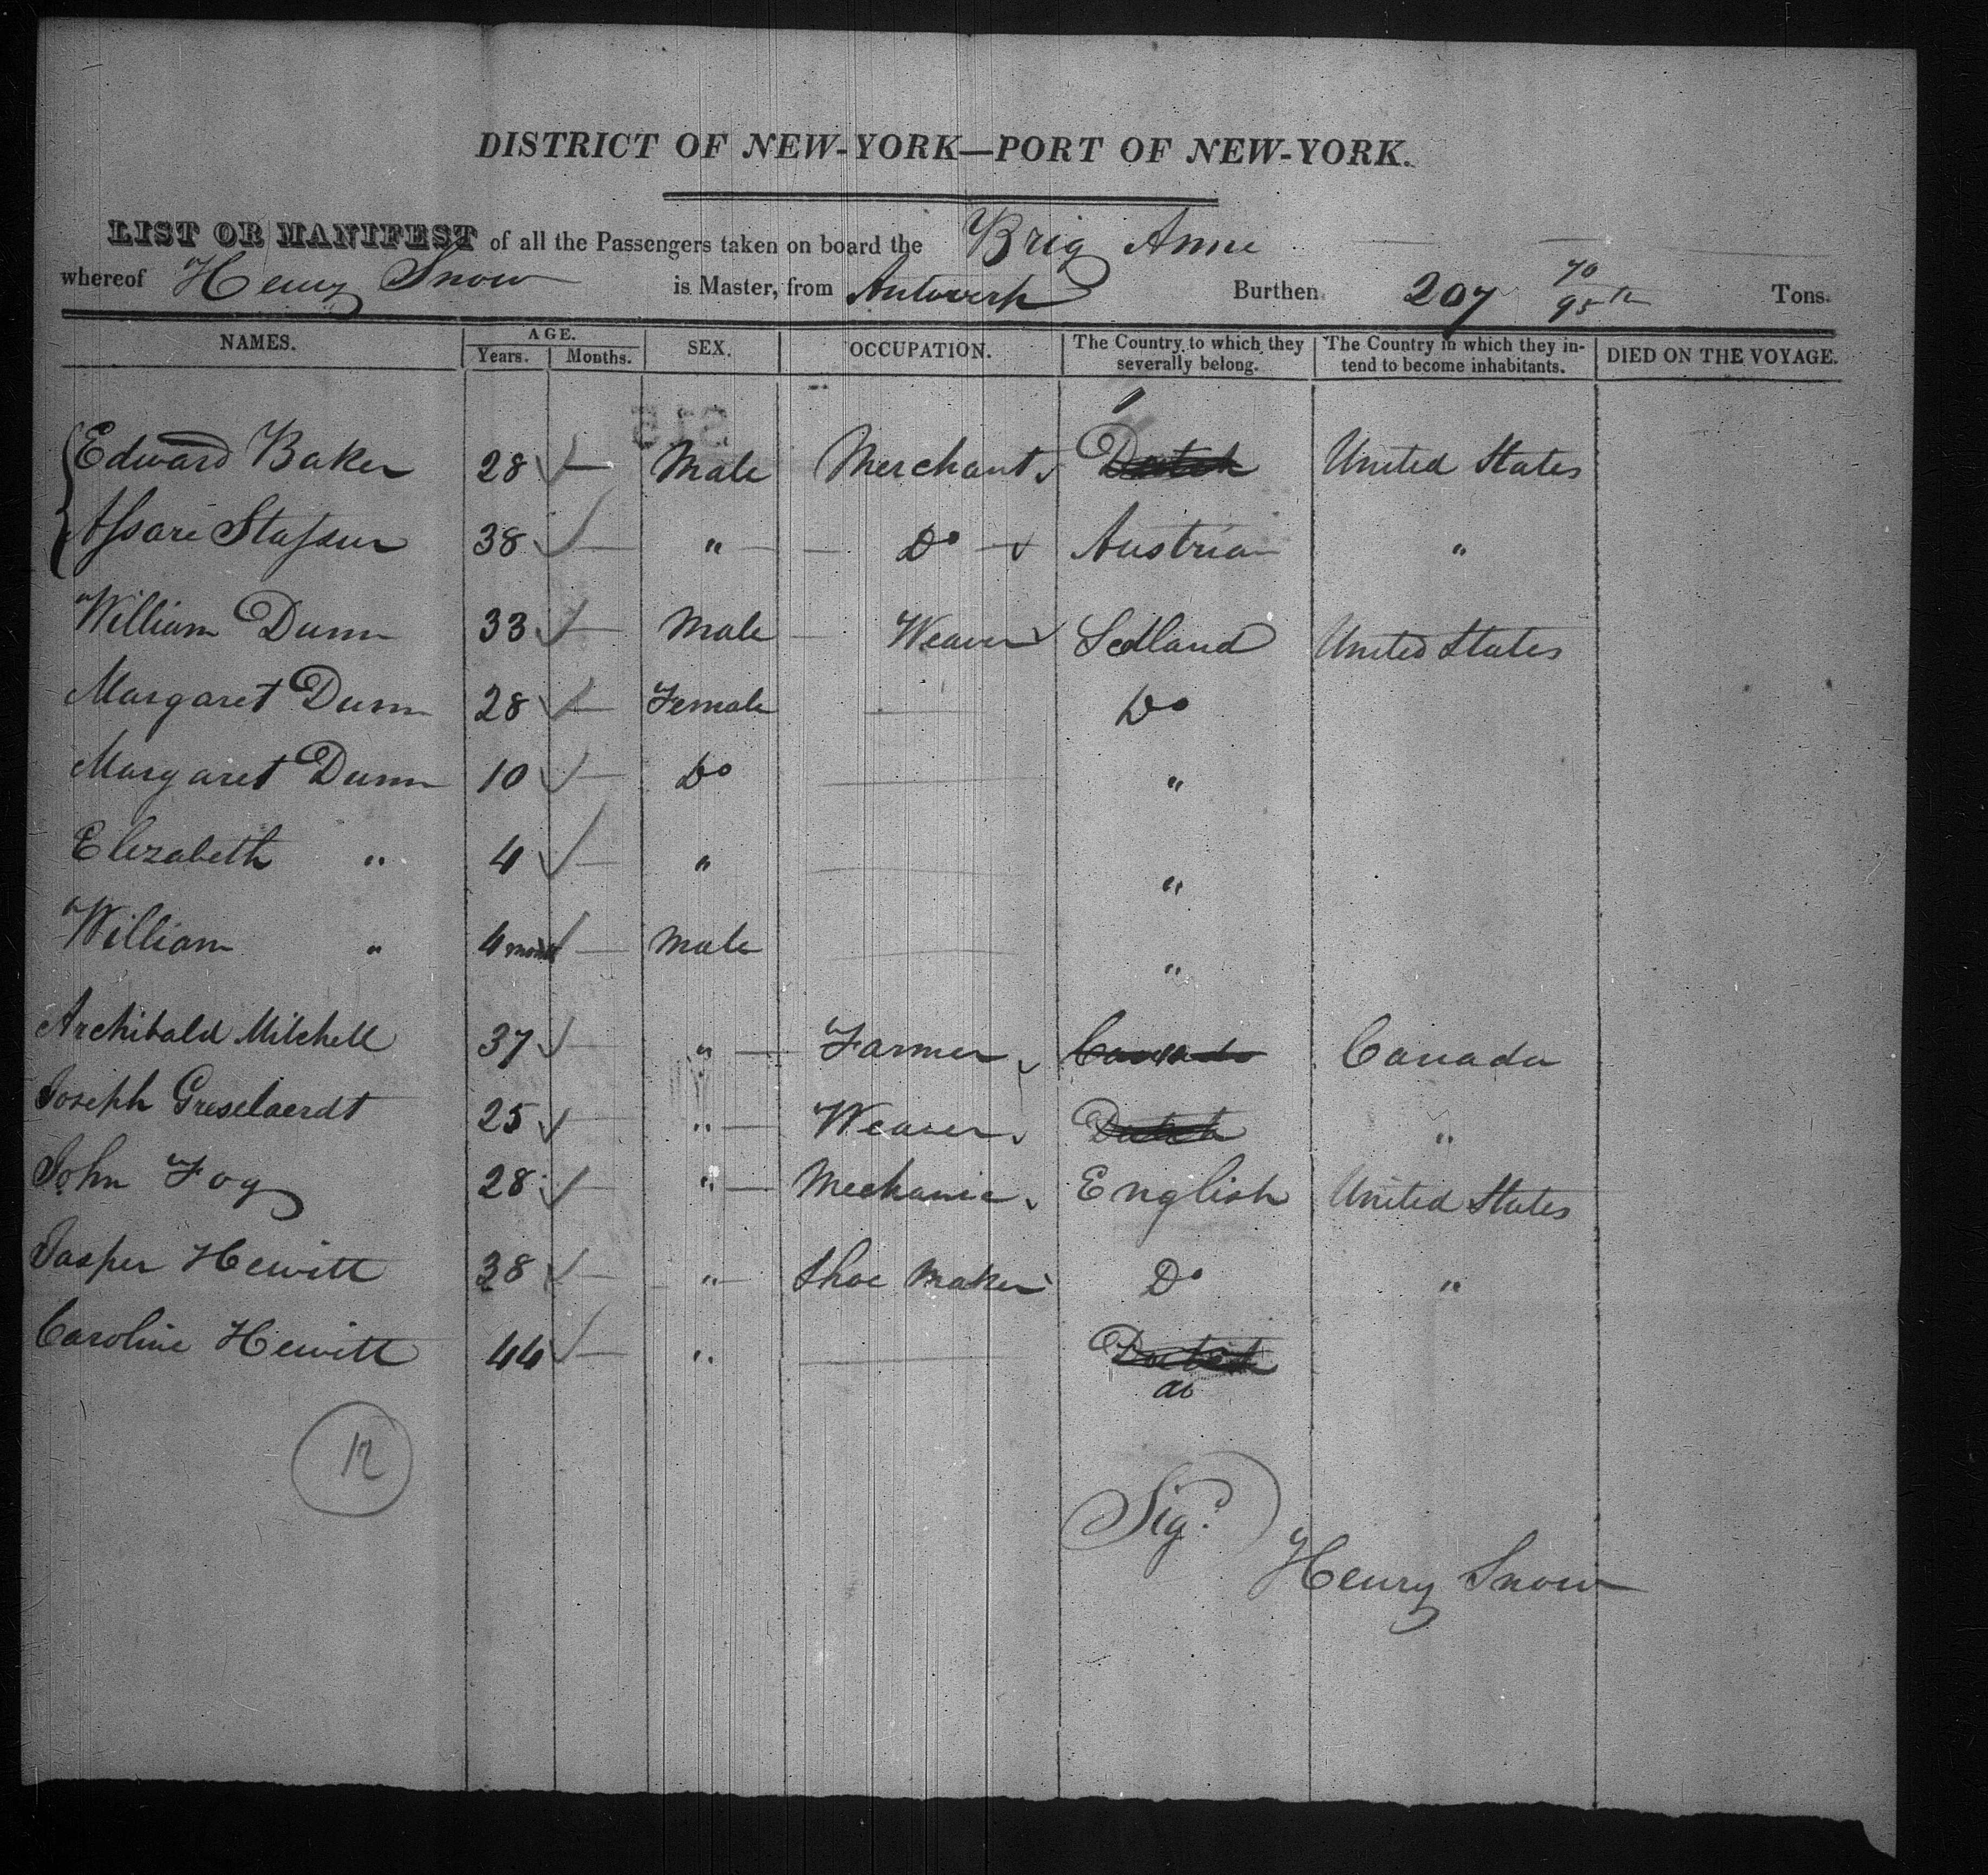 DISTRICT OF NEW-YORK—PORT OF NEW-YORK.
LIST OR MANIFEST of all the Passengers taken on board the Brig Anne
whereof Henry Snow is Master, from Antwerp Burthen 207 70/95th Tons.
NAMES. AGE. Years. Months. SEX. OCCUPATION. The Country to which they severally belong. The Country in which they intend to become inhabitants. DIED ON THE VOYAGE.
Edward Baker 28 — Male Merchant Dutch United States
38 — " Do Austria "
William Dunn 33 — Male Weaver Scotland United States
Margaret Dunn 28 — Female — Do
Margaret Dunn 10 — Do — "
Elizabeth " 4 — " — "
William " 4 month — Male — "
Archibald Mitchell 37 — " Farmer Canada Canada
Joseph Greselaerdt 25 — " Weaver Dutch "
John Fog 28 — " Mechanic English United States
Jasper Hewitt 38 — " Shoe Maker Do "
Caroline Hewitt 44 — " — Dutch
do
12
Sigd
Henry Snow